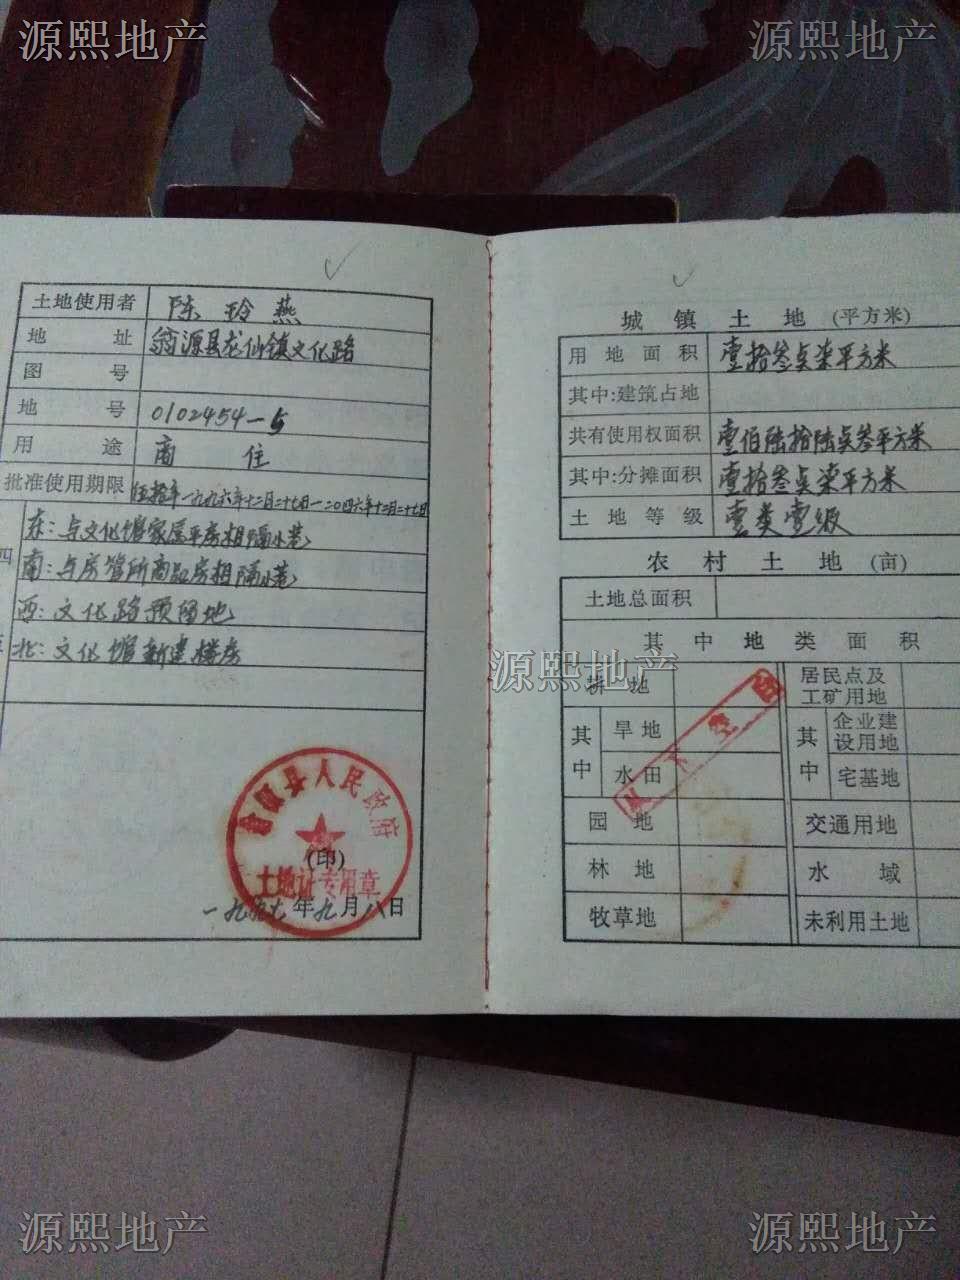 源熙地产
源熙地产
土地使用者 陈玲燕
地址 翁源县龙仙镇文化路
图号
地号 0102454-5
用途 商住
批准使用期限 伍拾年一九九六年十二月二十七日一二0四六年十二月二十七日
四
东：与文化馆家属平房相隔小巷
南：与房管所商品房相隔小巷
西：文化路预留地
北：文化馆新建楼房
县人民政府
(印)
土地证专用章
一九九七年九月八日
城镇土地(平方米)
用地面积 壹拾叁点柒平方米
其中:建筑占地
共有使用权面积 壹佰陆拾陆点叁平方米
其中:分摊面积 壹拾叁点柒平方米
土地等级 壹类壹级
农村土地(亩)
土地总面积
其中地类面积
源熙地产
耕地 居民点及工矿用地
其中 旱地 其中 企业建设用地
水田 宅基地
以下空白
园地 交通用地
林地 水域
牧草地 未利用土地
源熙地产
源熙地产